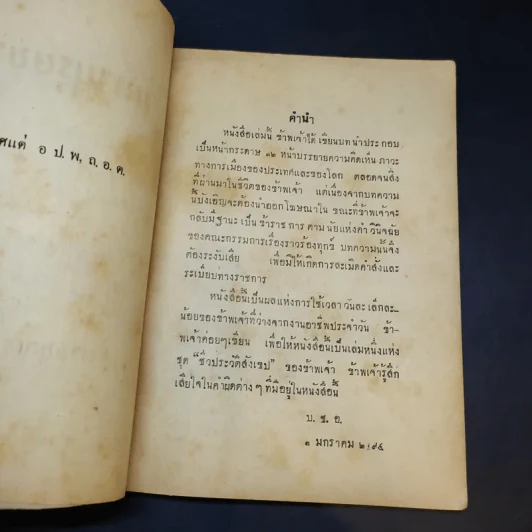 ศแด่ อ ป. พ, ถ. อ. ด.
คำนำ
หนังสือเล่มนี้ ข้าพเจ้าได้เขียนบทนำประกอบ
เป็นหน้ากระดาษ ๓๒ หน้าบรรยายความคิดเห็น ภาวะ
ทางการเมืองของประเทศและของโลก ตลอดจนสิ่ง
ที่ผ่านมาในชีวิตของข้าพเจ้า แต่เนื่องจากบทความ
นี้บังเอิญจะต้องนำออกโฆษณาใน ขณะที่ข้าพเจ้าจะ
กลับมีฐานะ เป็น ข้าราช การ ตาม นัยแห่งคำ วินิจฉัย
ของคณะกรรมการเรื่องราวร้องทุกข์ บทความนั้นจึง
ต้องระงับเสีย เพื่อมิให้เกิดการละเมิดคำสั่งและ
ระเบียบทางราชการ
หนังสือนี้เป็นผลแห่งการใช้เวลา วันละเล็กละ-
น้อยของข้าพเจ้าที่ว่างจากงานอาชีพประจำวัน ข้า-
พเจ้าค่อยๆเขียน เพื่อให้หนังสือนี้เป็นเล่มหนึ่งแห่ง
ชุด "ชีวประวัติสังเขป" ของข้าพเจ้า ข้าพเจ้ารู้สึก
เสียใจในคำผิดต่าง ๆ ที่มีอยู่ในหนังสือนี้
บ. ช. อ.
๑ มกราคม ๒๔๙๔